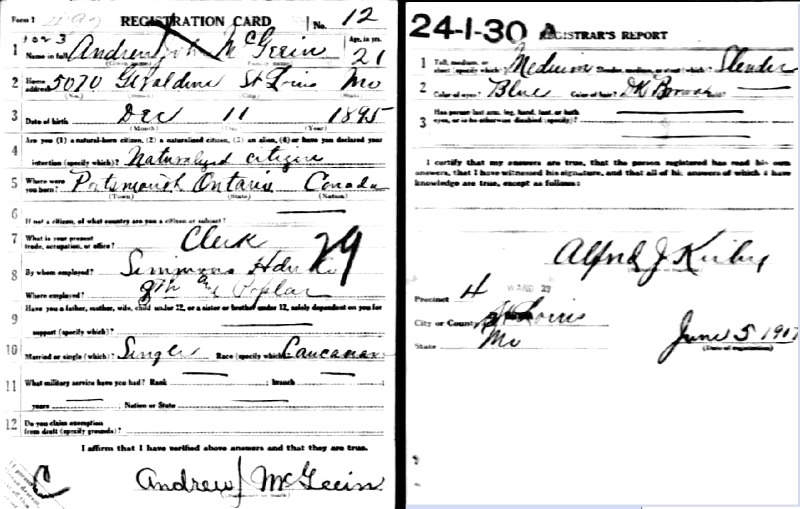 Form 1 REGISTRATION CARD No. 12
1 Name in full Andrew John McGeein Age, in yrs. 21
2 Home address 5070 Geraldine St Louis Mo
3 Date of birth Dec 11 1895
(Month) (Day) (Year)
4 Are you (1) a natural-born citizen, (2) a naturalized citizen, (3) an alien, (4) or have you declared your
intention (specify which)? Naturalized citizen
5 Where were you born? Portsmouth Ontario Canada
(Town) (State) (Nation)
6 If not a citizen, of what country are you a citizen or subject?
7 What is your present trade, occupation, or office? Clerk 29
8 By whom employed? Simmons Hdw Co
Where employed? 9th and Poplar
9 Have you a father, mother, wife, child under 12, or a sister or brother under 12, solely dependent on you for
support (specify which)?
10 Married or single (which)? Single Race (specify which)? Caucasian
11 What military service have you had? Rank ; branch
years ; Nation or State
12 Do you claim exemption from draft (specify grounds)?
I affirm that I have verified above answers and that they are true.
C Andrew J McGeein
24-1-30 A REGISTRAR'S REPORT
1 Tall, medium, or short (specify which)? Medium Slender, medium, or stout (which)? Slender
2 Color of eyes? Blue Color of hair? Dk Brown
3 Has person lost arm, leg, hand, foot, or both
eyes, or is he otherwise disabled (specify)?
I certify that my answers are true, that the person registered has read his own
answers, that I have witnessed his signature, and that all of his answers of which I have
knowledge are true, except as follows:
Alfred J Kirby
Precinct 4 WARD
City or County St Louis
State Mo June 5 1917
(Date of registration)